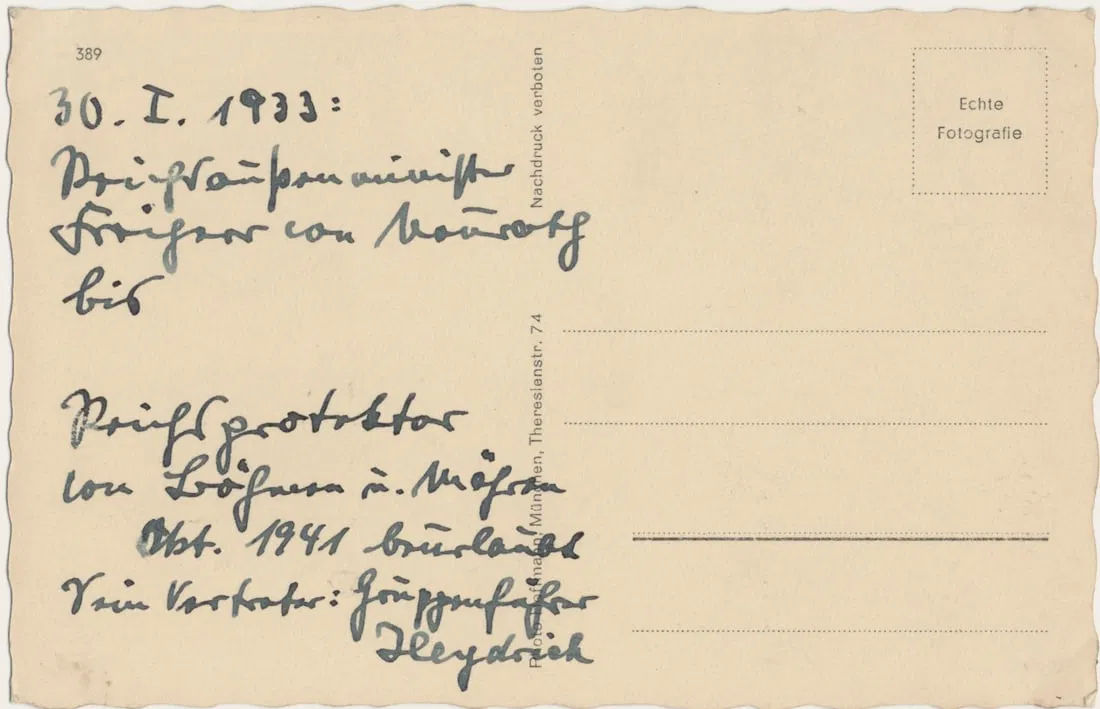 389
30. I. 1933:
Reichsaußenminister
Freiherr von Neurath
bis
Reichsprotektor
von Böhmen u. Mähren
Okt. 1941 beurlaubt
Sein Vertreter: Gruppenführer
Heydrich
Nachdruck verboten
Photo Hoffmann, München, Theresienstr. 74
Echte
Fotografie